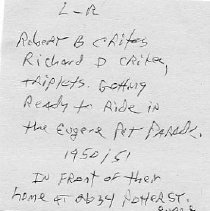 L - R
Robert B Crites
Richard D Crites,
triplets. Getting
Ready to Ride in
the Eugene Pet Parade.
1950/51
IN FRONT of their
home